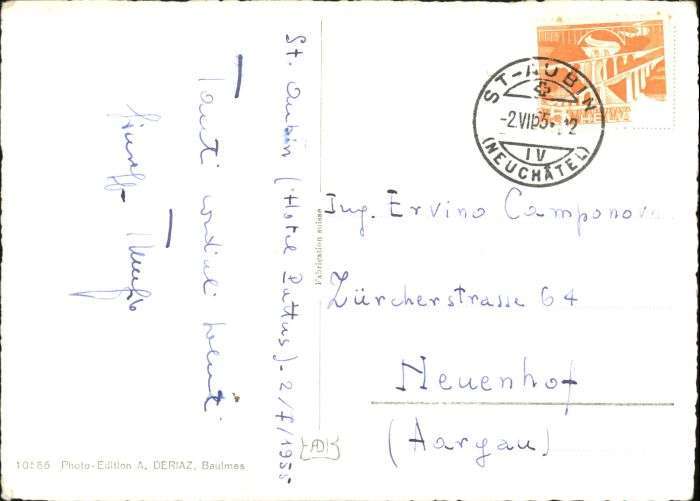 St. Aubin (Hotel Pattus) - 2/7/1955
Tanti cordiali saluti
Fabrication suisse
ST-AUBIN
-2.VII.55.-12
IV
(NEUCHÂTEL)
HELVETIA
Ing. Ervino Camponovo
Zürcherstrasse 64
Neuenhof
(Aargau)
10166 Photo-Edition A. DERIAZ, Baulmes